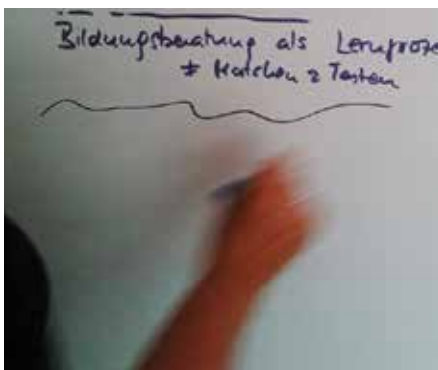 Bildungsberatung als Lernproze
≠ Matchen & Testen